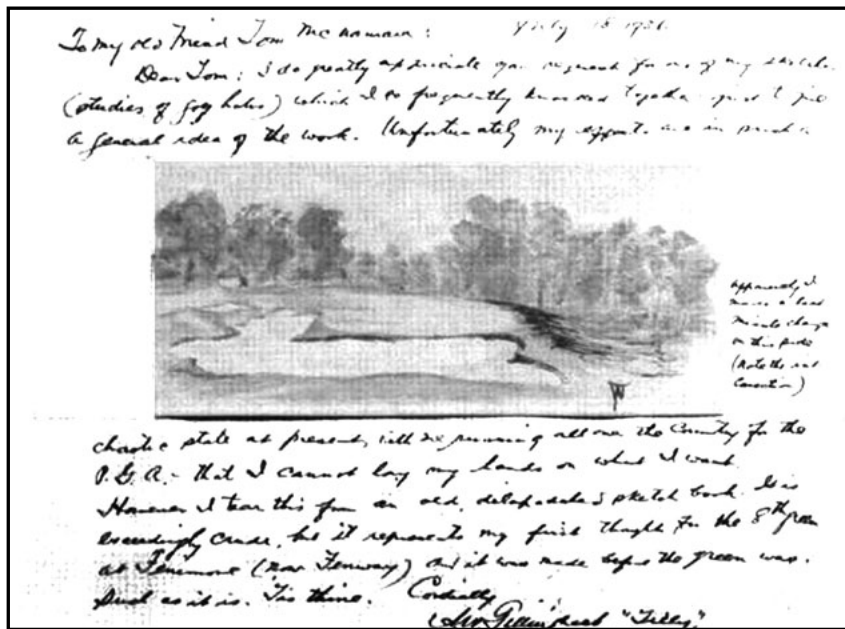 To my old Friend Tom McNamara:
July 15 1936.
Dear Tom: I do greatly appreciate your request for one of my sketches
(studies of golf holes) which I so frequently knocked together to give
a general idea of the work. Unfortunately my effects are in such a
Apparently I
made a last
minute change
on this side
(Note the red
)
chaotic state at present, with me running all over the Country for the
P.G.A. - that I cannot lay my hands on what I want.
However I tear this from an old, delapadated sketch book. It is
exceedingly crude, but it represents my first thought for the 8th green
at Fenimore (now Fenway) and it was made before the green was.
Such as it is. 'Tis thine. Cordially
"Tilly"